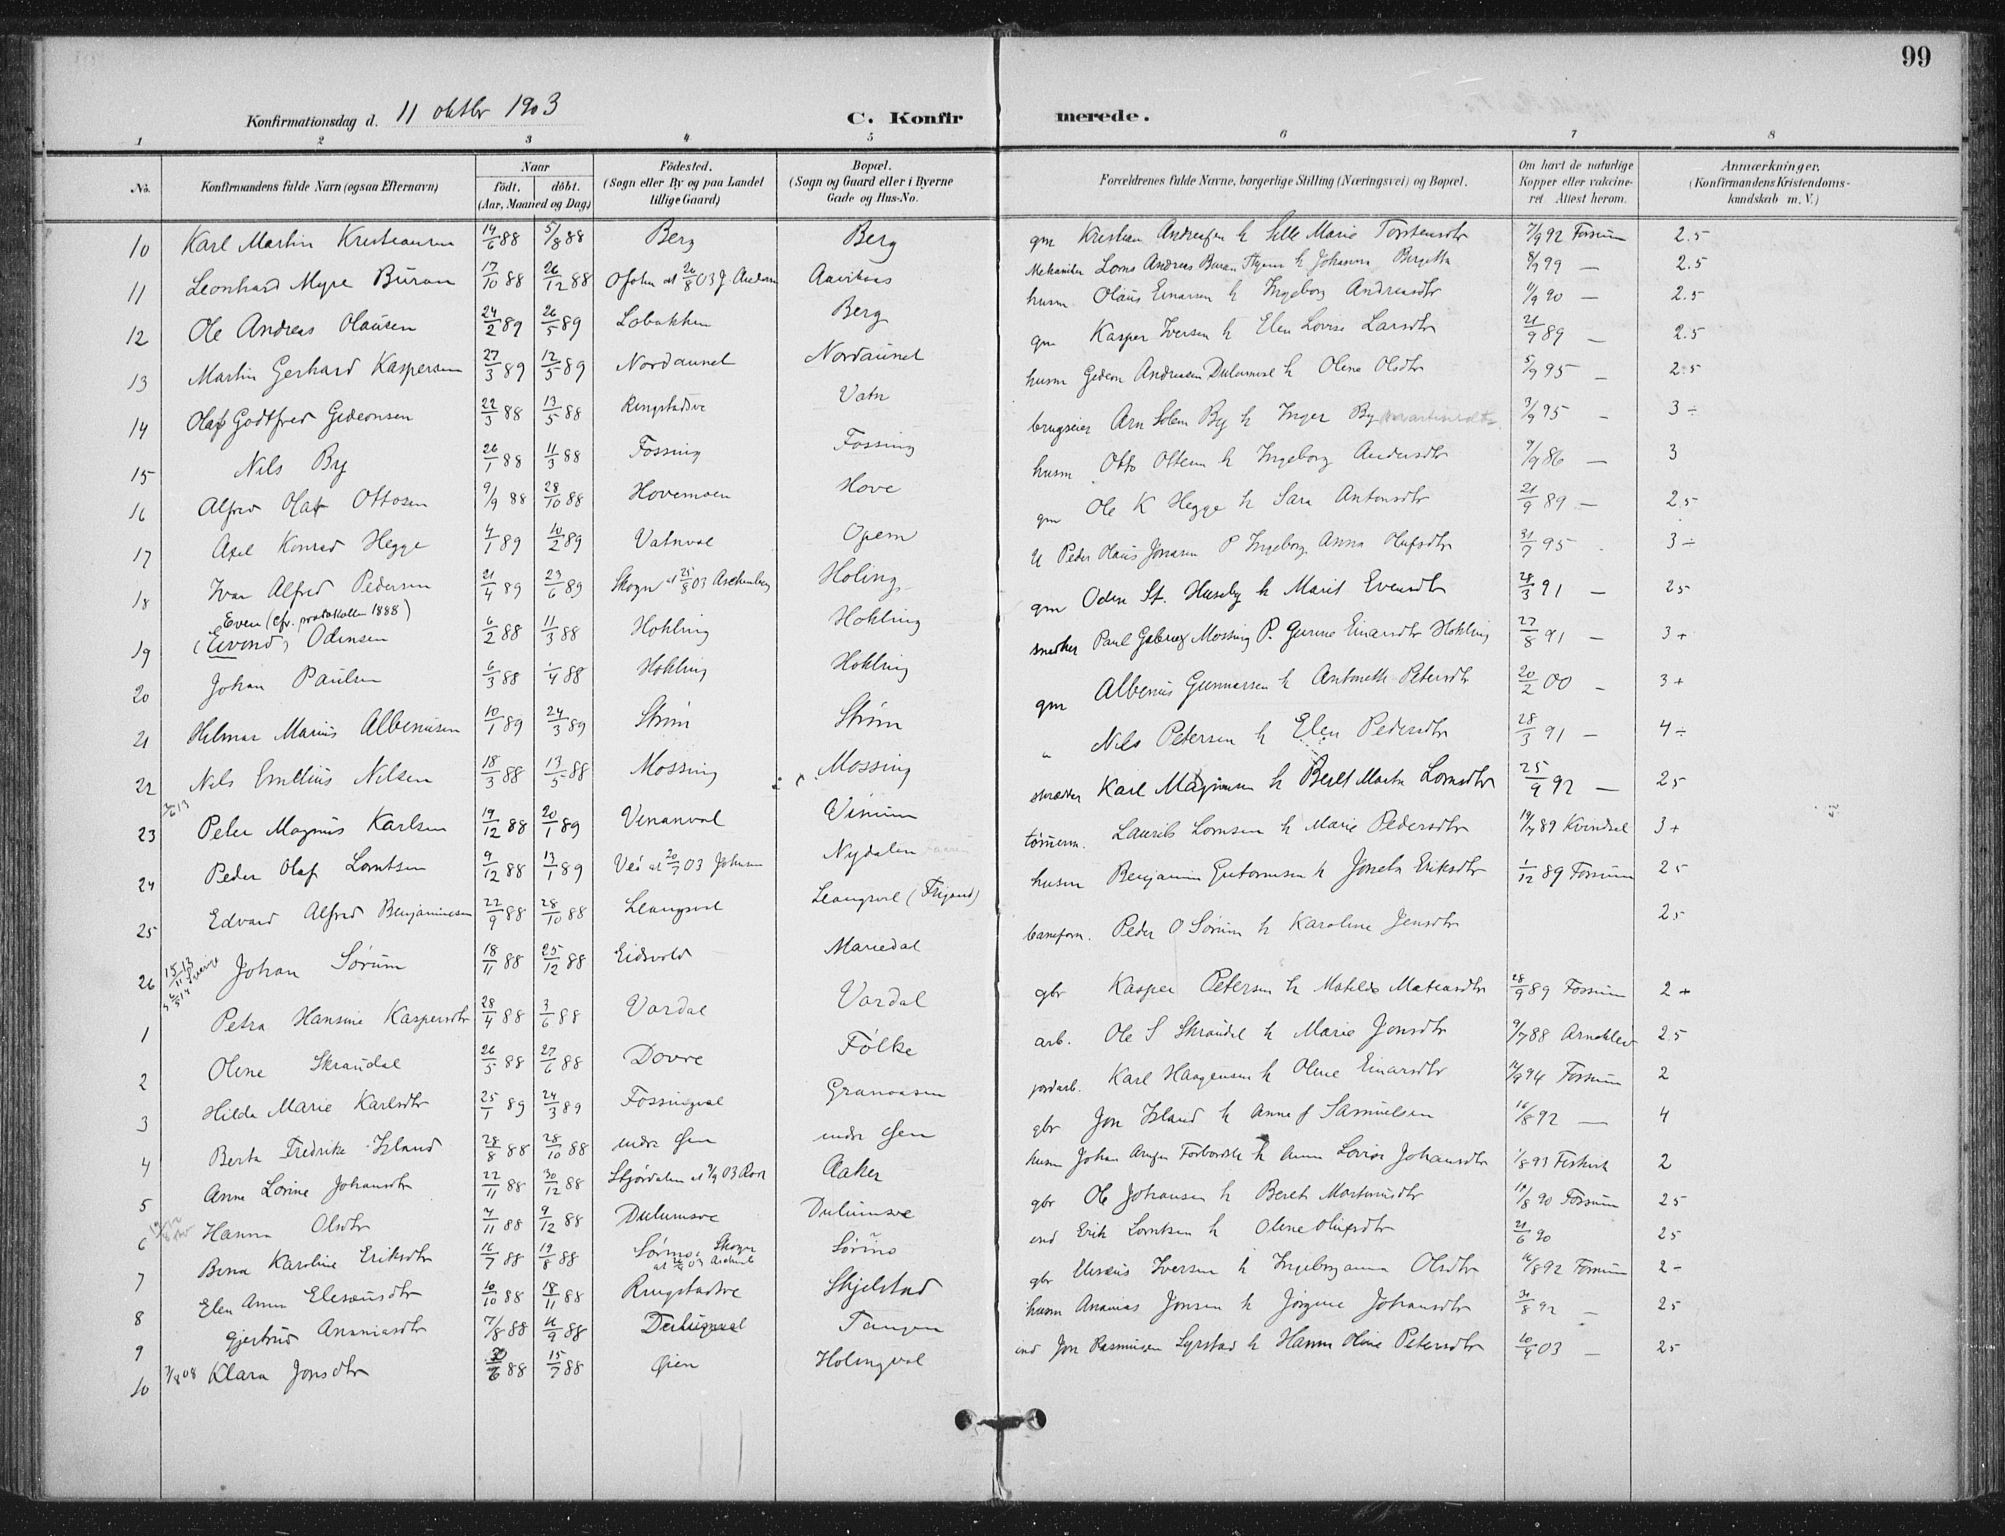 99
Konfirmationsdag d. 11 oktbr 1903 C. Konfirmerede.
1 2 3 4 5 6 7 8
No. Konfirmandens fulde Navn (ogsaa Efternavn) Naar födt. döbt. (Aar, Maaned og Dag) Födested. (Sogn eller By og paa Landet tillige Gaard) Bopæl. (Sogn og Gaard eller i Byerne Gade og Hus-No. Forældrenes fulde Navne, borgerlige Stilling (Næringsvei) og Bopæl. Om havt de naturlige Kopper eller vaccineret Attest herom. Anmærkninger, (Konfirmandens Kristendomskundskab m. V.)
10 Karl Martin Kristiansen 14/6 88 5/8 88 Berg Berg gm Kristian Andreasen h Marie Torstensdtr 7/9 92 Fossum 2.5
11 Leonhard Myre Buran 17/10 88 26/12 88 at 26/8 03 Aavikaas Mekaniker Lorns Andreas Buran h Johanna Bergitta 8/9 99 — 2.5
12 Ole Andreas Olausen 24/2 89 26/5 89 Lobakken Berg husm Olaus Einarsen h Ingeborg Andreasdtr 9/9 90 — 2.5
13 Martin Gerhard Kaspersen 27/3 89 12/5 89 Nordaunet Nordaunet gm Kasper Iversen h Elen Lovise Larsdtr 21/9 89 — 2.5
14 Olaf Godtfred Gideonsen 22/3 88 13/5 88 Ringstadsve Vatn husm Gideon Andreasen Dulumsve h Oline Olsdtr 5/9 95 — 2.5
15 Nils By 26/1 88 11/3 88 Fossing Fossing brugseier Arn Solem By h Inger By 3/9 95 — 3 ÷
16 Alfred Olaf Ottosen 9/9 88 28/10 88 Hovemoen Hove husm Otto Ottesen h Ingeborg Andersdtr 9/9 86 — 3
17 Axel Konrad Hegge 4/1 89 10/2 89 Vatnval Opem gm Ole K Hegge h Sara Antonsdtr 21/9 89 — 2.5
18 Ivar Alfred Pedersen 21/4 89 23/6 89 Skogn at 25/8 03 Aschenberg Holing U Peder Olaus Jonasen P Ingeborg Anna Olufsdtr 31/7 95 3 ÷
Even (cfr. protokollen 1888)
19 (Eivind) Odinsen 6/2 88 11/3 88 Hokling Hokling gm Odin St. Huseby h Marit Evensdtr 28/3 91 — 25
20 Johan Paulsen 6/3 88 1/4 88 Hokling Hokling snedker Paul Gabriel Mossing P. Gurine Einarsdtr Hokling 27/8 91 — 3 +
21 Hilmar Marius Albinusen 10/1 89 24/3 89 Strøm Strøm gm Albinus Gunnarsen h Antonette Petersdtr 20/2 00 — 3 +
22 Nils Emilius Nilsen 18/3 88 13/5 88 Mossing Mossing " Nils Petersen h Elen Pedersdtr 28/3 91 — 4 ÷
23 Peter Magnus Karlsen 19/12 88 20/1 89 Venanval Vinum skrædder Karl Magnusen h Beret Marta Lornsdtr 25/9 92 — 25
24 Peder Olaf Lorntsen 9/12 88 13/1 89 at 20/7 03 Johnsen Nydalen tømerm. Laurits Lornsen h Marie Pedersdtr 14/7 89 Kvindsel 3 +
25 Edvard Alfred Benjaminsen 22/9 88 28/10 88 Leangsval Leangsval (Frigaard) husm Benjamin Gutormsen h Joneta Eriksdtr 1/12 89 Fossum 25
26 Johan Sørum 18/11 88 25/12 88 Eidsvold Mariedal baneform. Peder O Sørum h Karoline Jensdtr 25
1 Petra Hansine Kaspersdtr 28/4 88 3/6 88 Vordal Vordal gbr Kasper Petersen h Matilde Mateasdtr 28/9 89 Fossum 2 +
2 Oline Skraudal 26/5 88 27/6 88 Dovre Følke arb. Ole S Skraudal h Marie Jonsdtr 9/7 88 Arneklev 2.5
3 Hilda Marie Karlsdtr 25/1 89 24/3 89 Fossingval Granaasen jordarb. Karl Haagensen h Oline Einarsdtr 12/9 94 Fossum 2
4 Berta Fredrikke Island 28/8 88 28/10 88 indre Øen indre Øen gbr Jon Island h Anne f Samuelsen 16/8 92 — 4
5 Anne Lorine Johansdtr 22/11 88 30/12 88 Stjørdalen Aaker husm Johan h Anne Lovise Johansdtr 1/8 93 2
6 Hanna Olsdtr 7/11 88 9/12 88 Dulumsve Dulumsve gbr Ole Johansen h Beret Martinusdtr 14/8 90 Fossum 25
7 Berna Karoline Eriksdtr 16/7 88 19/8 88 Sørmo Skogn Sørmo ind Erik Lorntsen h Oline Olufsdtr 21/6 90 25
8 Elen Anna Eleseusdtr 10/10 88 18/11 88 Ringstadsve Skjelstad gbr Eleseus Iversen h Ingeborganna Olsdtr 16/8 92 Fossum 2 -
9 Gjertrud Ananiasdtr 7/8 88 16/9 88 Tangen husm Ananias Jonsen h Jørgine Johansdtr 31/8 92 — 25
10 7/8 08 Klara Jonsdtr 30/6 88 15/7 88 Øien Holingval ind Jon Rasmussen Lyrstad h Hanna Oline Petersdtr 10/9 03 — 25